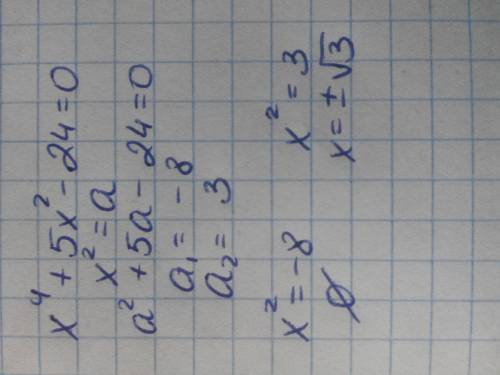 x⁴ + 5x² - 24 = 0
x² = a
a² + 5a - 24 = 0
a₁ = -8
a₂ = 3
x² = -8
∅
x² = 3
x = ±√3